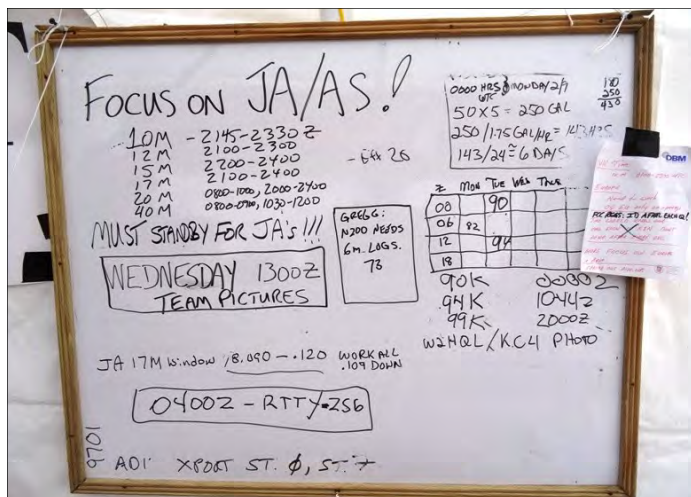 FOCUS ON JA/AS!
10M - 2145-2330 Z
12M 2100-2300
15M 2200-2400
17M 2100-2400
20M 0800-1000, 2000-2400
40M 1030-1200
MUST STANDBY FOR JA's !!!
WEDNESDAY 1300Z
TEAM PICTURES
GREGG:
N200 NEEDS
6M. LOGS.
73
0000 HRS MONDAY 2/9
UTC
50X5 = 250 GAL
250/1.75 GAL/HR = 143 HRS
143/24 ≅ 6 DAYS
180
250
430
Z MON TUE WED THUR
00 90
06 82
12 94
18
90K 0000Z
94K 1044Z
99K 2000Z
W2HQL/KC4 PHOTO
DBM
JA 17M Window 18.090 - .120 WORK ALL
.109 DOWN
0400Z - RTTY ZS6
9701
ADI XPORT ST. ϕ, ST. 7